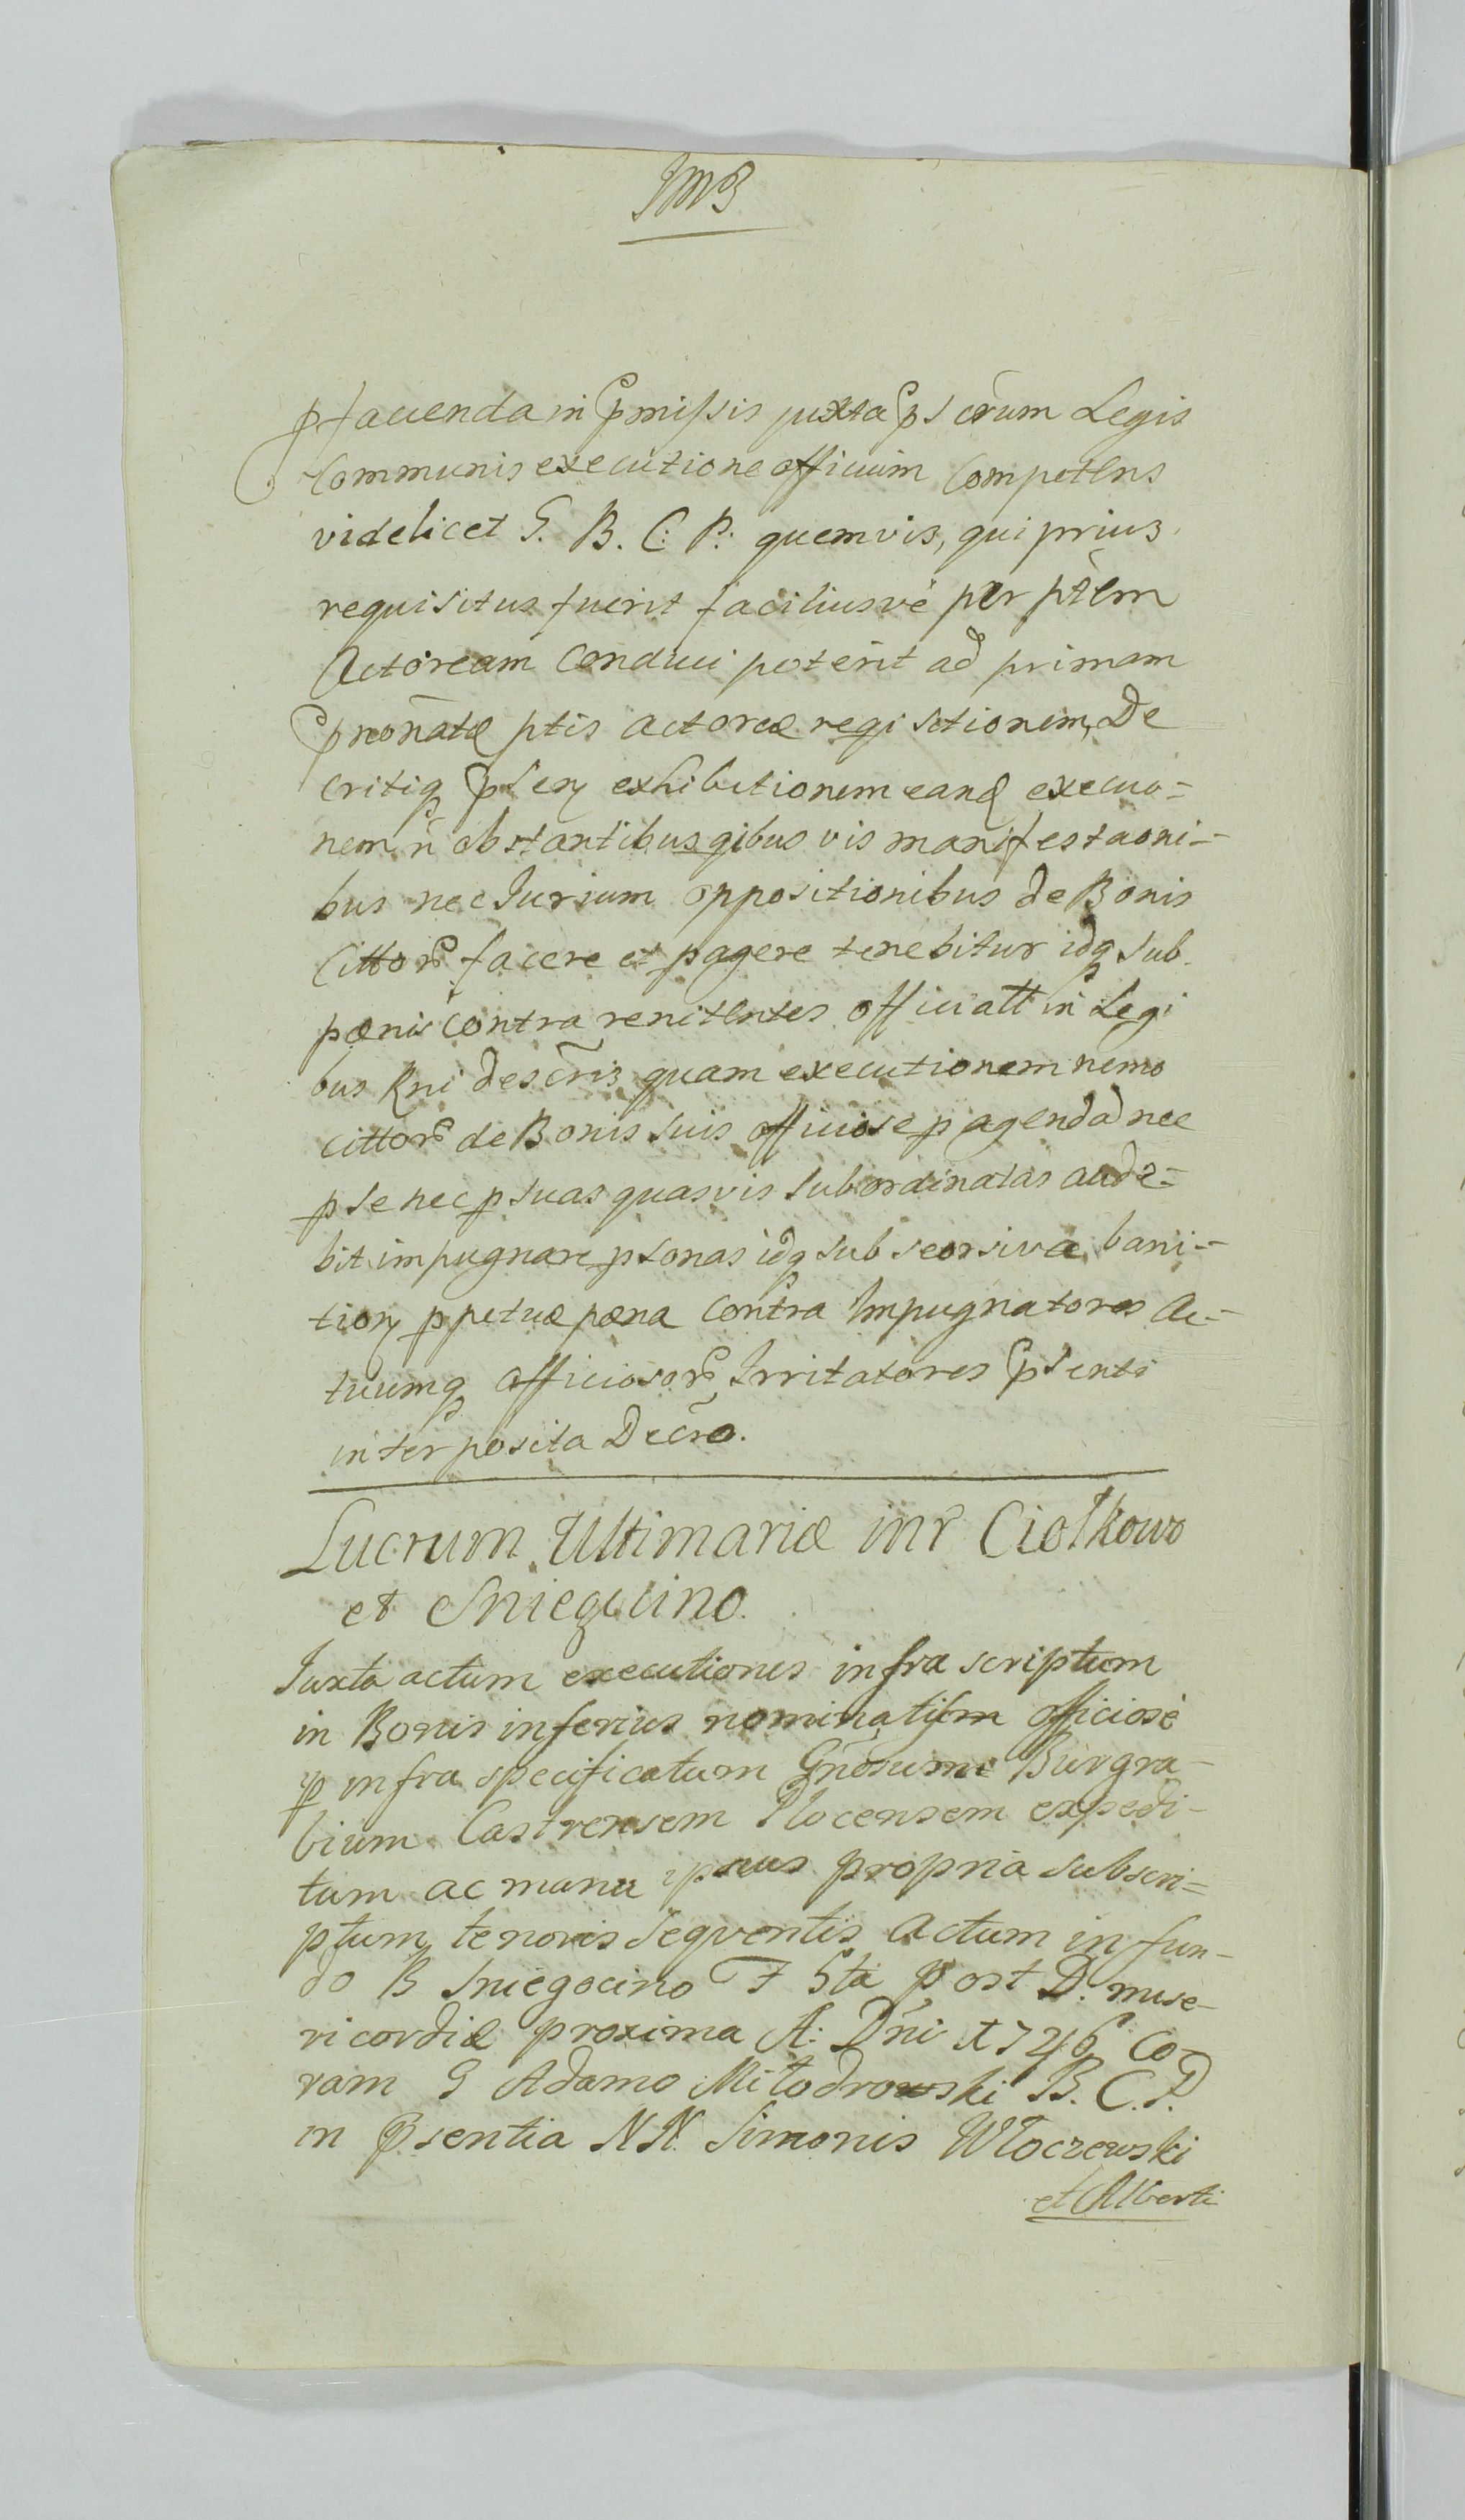 JMB
pfaciendam in pmissis juxta ps crum Legis
Communis executione officium Competens
videlicet G. B. C: P: quemvis, qui prius
requisitus fuerit faciliusvè per ptem
Actoream Conduci poterit ad primam
prenõatæ ptis actoreæ reqisitionem, De
critiq psen exhibitionem eand execuo=
nem ñ obstantibus qibus vis manifestaoni-
bus nec Jurium oppositionibus de Bonis
Cittor facere et pagere tenebitur idq sub
pænis contra renitentes officiatt in Legi
bus Rni descris quam executionem nemo
cittor de Bonis suis officiose pagendã nec
p se nec p suas quasvis subordinatas aude=
bit impugnare psonas idq sub seorsivæ bani-
tion ppetuæ pæna contra Impugnatores Ac-
tuumq officiosor Irritatores psenti
interposita Decro.
Lucrum Ultimariæ inr Ciołkowo
et Sniegocino.
Juxta actum executionis infra scriptum
in Bonis inferius nominatis officiosè
p infra specificatum Gñosum Burgra-
bium Castrensem Plocensem expedi-
tum ac manu ipsius propria subscri=
ptum tenoris seqventis Actum in fun-
do B Sniegocino F 5ta post D. mise-
ricordiæ proxima A: Dni 1746 Co-
ram G Adamo Miłodrowski B. C. P.
in Psentia NN. Simonis Włoczewski
et Alberti